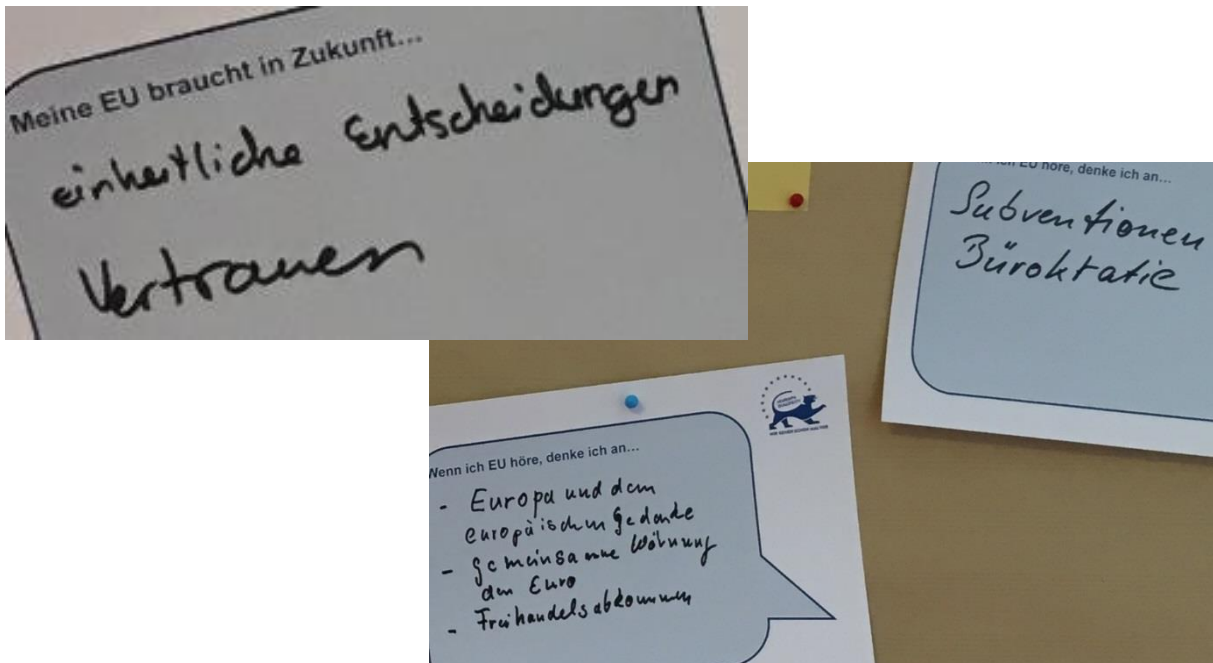 Meine EU braucht in Zukunft...
einheitliche Entscheidungen
Vertrauen
EU höre, denke ich an...
Subventionen
Büroktatie
Wenn ich EU höre, denke ich an...
- Europa und dem
europäischen Gedanke
- Gemeinsamme Währung
den Euro
- Freihandelsabkommen